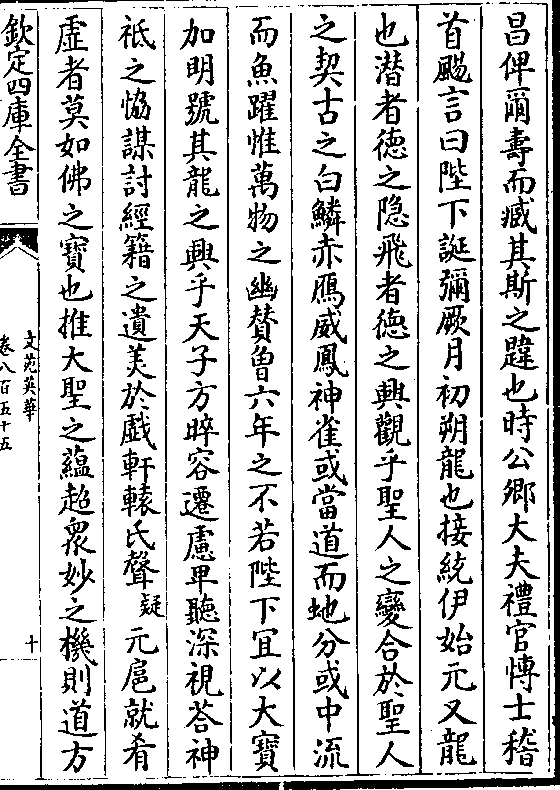 昌俾爾壽而臧其斯之韙也時公卿大夫禮官慱士稽
首颺言曰陛下誕彌厥月初朔龍也接統伊始元又龍
也潛者德之隐飛者德之興觀乎聖人之變合於聖人
之契古之白鱗赤鴈威鳳神雀或當道而虵分或中流
而魚躍惟萬物之幽賛曾六年之不若陛下冝以大寶
加明號其龍之興乎天子方睟容遷慮卑聽深視荅神
祗之恊謀討經籍之遺美於戯軒轅氏聲疑元扈就肴
虛者莫如佛之寶也推大聖之蘊超衆妙之機則道方
欽定四庫全書
文苑英華
卷八百五十五
十